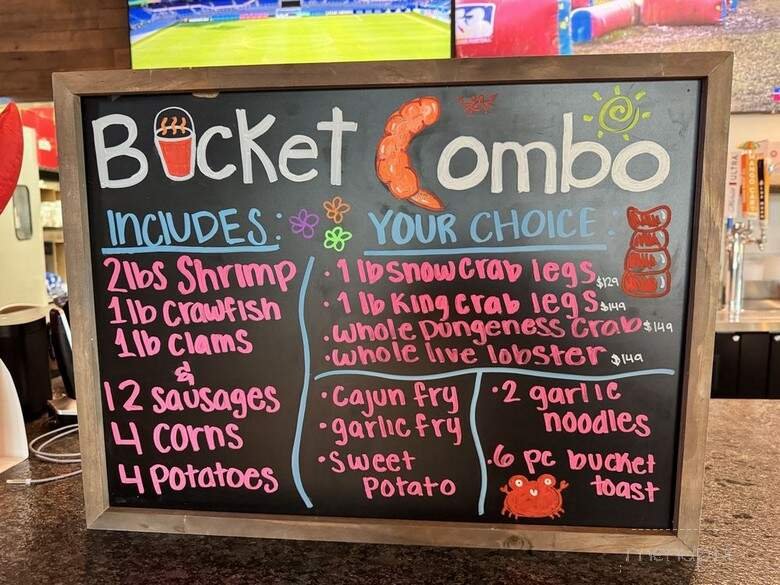 Bucket Combo
INCLUDES:
2lbs Shrimp
1lb Crawfish
1lb Clams
&
12 sausages
4 corns
4 potatoes
YOUR CHOICE:
• 1 lb snow crab legs $129
• 1 lb King crab legs $149
• whole Dungeness Crab $149
• whole live lobster $149
• Cajun fry
• garlic fry
• sweet
potato
• 2 garlic
noodles
• 6 pc bucket
toast
ULTRA
MANGO CART